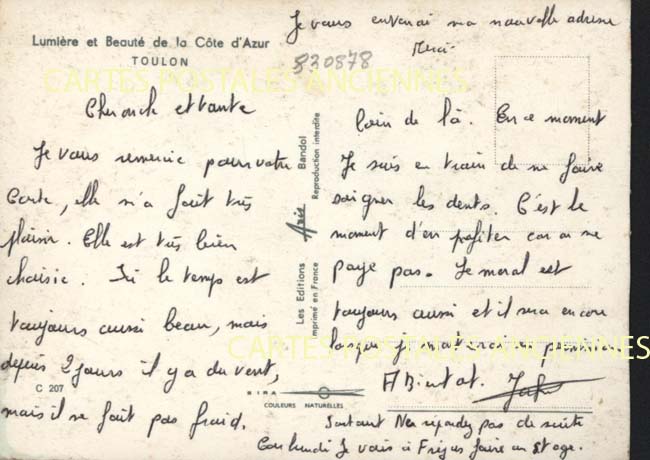 Je vous enverai ma nouvelle adresse
Merci
Lumière et Beauté de la Côte d'Azur
TOULON
830878
CARTES POSTALES ANCIENNES
Cher oncle et tante
Je vous remercie pour votre
Carte, elle m'a fait très
plaisir. Elle est très bien
choisie. Ici le temps est
toujours aussi beau, mais
depuis 2 jours il y a du vent,
mais il ne fait pas froid.
C 207
Les Editions Aris Bandol
Imprimé en France Reproduction interdite
loin de là. En ce moment
Je suis en train de me faire
soigner les dents. C'est le
moment d'en profiter car on ne
paye pas. Le moral est
toujours aussi et il sera encore
lorsque je
CARTES POSTALES ANCIENNES
A Bientot.
SIRA
COULEURS NATURELLES
Surtout Ne repondez pas de suite
Car lundi Je vais à Frejus faire un Stage.